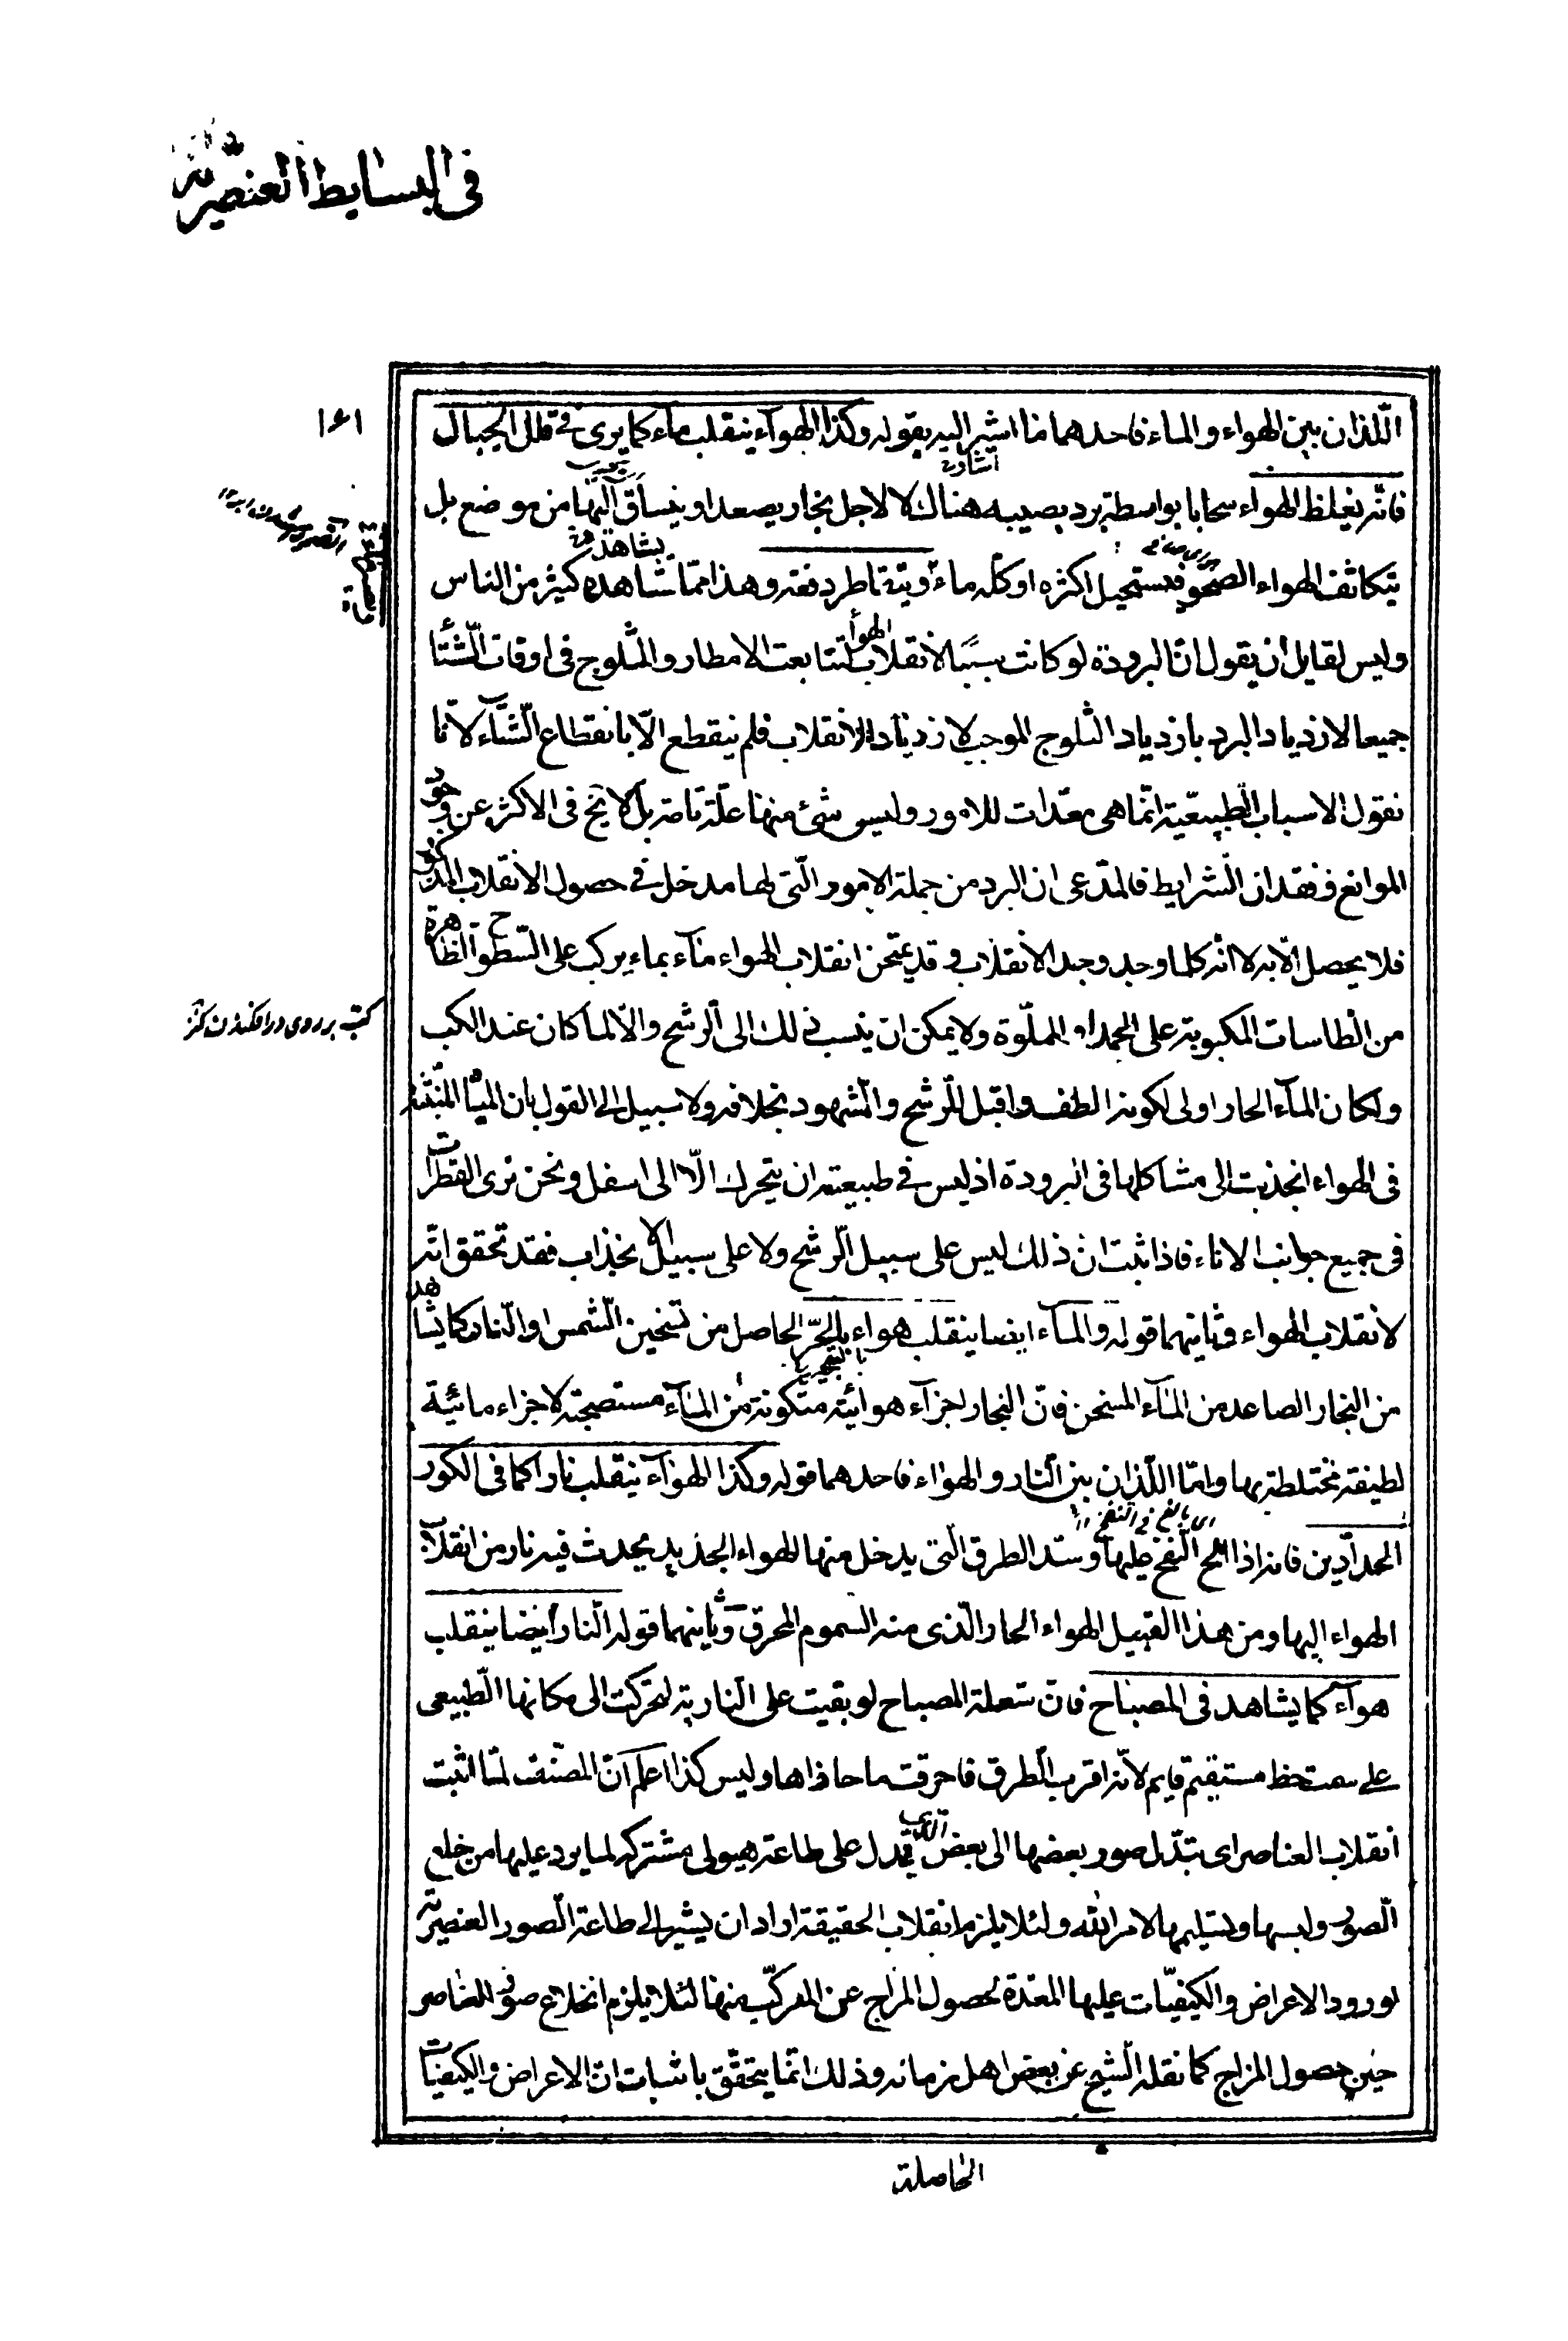 في البسايط العنصرية
١٦١
اللذان بين الهواء والماء فاحدهما ما اشير اليه بقوله وكذا الهوآء ينقلب ماء كما يرى في قلل الجبال
فانّه يغلظ الهواء سحابا بواسطة برد يصيبه هناك لا لاجل بخار يصعد او ينساق اليها من موضع بل
يتكاثف الهواء الصحو فيستحيل اكثره او كله ماء ويتقاطر دفعة وهذا ممّا شاهده كثير من الناس
وليس لقايل أن يقول انّ البرودة لو كانت سببًا لأنقلاب الهوآ لتتابعت الامطار والثلوج فى اوقات الشتا
جميعا لازدياد البرد بازدياد الثلوج الموجب لازدياد الانقلاب فلم ينقطع الّا بانقطاع الشتآء لأنّا
نقول الاسباب الطبيعيّة انّما هى معدّات للامور وليس شئ منها علّة تامة بل لا يخ فى الاكثر عن وجود
الموانع وفقدان الشرايط فالمدّعى ان البرد من جملة الامور الّتى لها مدخل في حصول الانقلاب المذكور
فلا يحصل الّا به لا انه كلما وجد وجد الأنقلاب وقد يمتحن انقلاب الهواء مآء بماء يركب على السّطوح الظاهرة
من الطاسات المكبوبة على الجمد او المملوّة ولا يمكن ان ينسب ذلك الى الرشح والّا لما كان عند الكب
ولكان المآء الحار اولى لكونه الطف واقبل للرشح والمشهود بخلافه ولا سبيل الى القول بان الميا المنبثة
فى الهواء انجذبت الى مشاكلها فى البرودة اذ ليس في طبيعته ان يتحرك الّا الى اسفل ونحن نرى القطرات
فى جميع جوانب الاناء فاذا ثبت ان ذلك ليس على سبيل الرّشح ولا على سبيل الانجذاب فقد تحقق انّه
لأنقلاب الهواء وثانيهما قوله والمآء ايضا ينقلب هواء بالحرّ الحاصل من تسخين الشمس او النار كما يشاهد
من البخار الصاعد من المآء المسخن فانّ البخار اجزآء هوائيّة متكونة من المآء مستصحبة لاجزاء مائية
لطيفة مختلطة بها وامّا اللذان بين النار والهواء فاحدهما قوله وكذا الهوآء ينقلب نارا كما فى الكور
الحدّادين فانه اذا الح النفخ عليها وسدّ الطرق الّتى يدخل منها الهواء الجديد يحدث فيه نار من انقلاب
الهواء اليها ومن هذا القبيل الهواء الحار الّذى منه السموم المحرق وثانيهما قوله النار أيضا ينقلب
هوآء كما يشاهد فى المصباح فانّ شعلة المصباح لو بقيت على الناريّة لتحركت الى مكانها الطبيعى
على سمت خط مستقيم قايم لأنّه اقرب الطرق فاحرقت ما حاذاها وليس كذا اعلم انّ المصنّف لمّا اثبت
انقلاب العناصر اى تبدّل صور بعضها الى بعض الذى يدل على طاعة هيولى مشتركة لما يرد عليها من خلع
الصور ولبسها وتسليمها لامر الله ولئلا يلزم انقلاب الحقيقة اراد ان يشير الى طاعة الصور العنصرية
لورود الاعراض والكيفيّات عليها المعدّة لحصول المزاج عن المركّب منها لئلا يلزم انخلاع صور العناصر
حين حصول المزاج كما نقله الشيخ عن بعض اهل زمانه وذلك انّما يتحقّق باثبات انّ الاعراض والكيفيات
كبّ بر روى در افكندن
الحاصلة